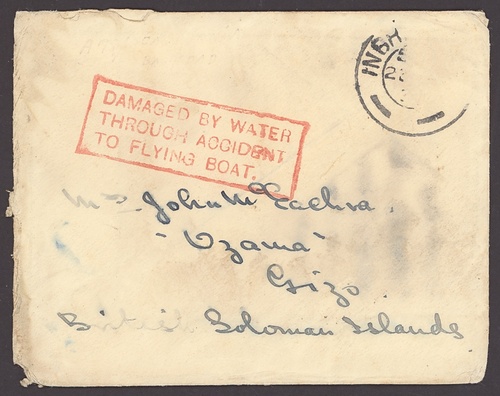 INGH
DAMAGED BY WATER
THROUGH ACCIDENT
TO FLYING BOAT.
John M Eachra
"Ozama"
Gizo
British Soloman Islands